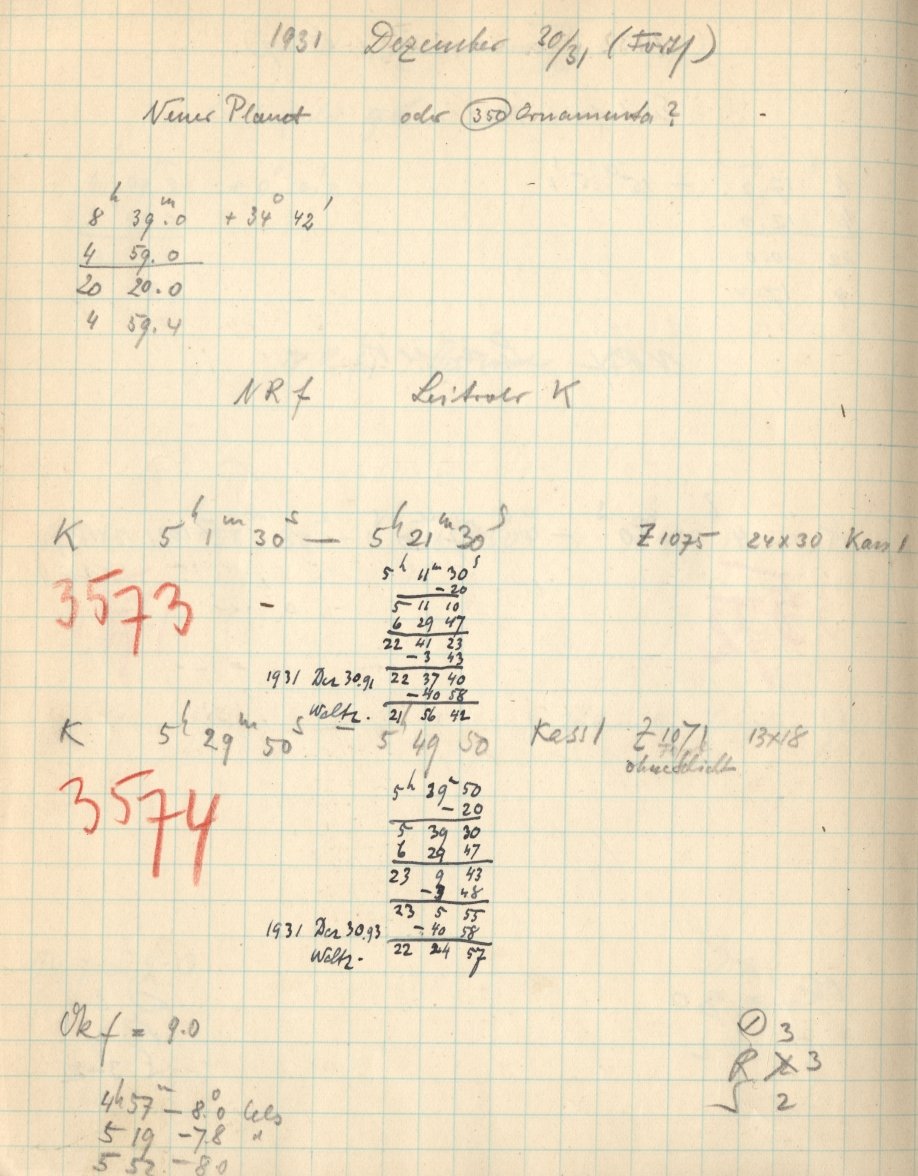 1931 Dezember 30/31 (Forts)
Neuer Planet oder (350) Ornamenta?
8h 39m.0 + 34° 42'
4 59.0
20 20.0
4 59.4
NR f Leitrohr K
K 5h 1m 30s — 5h 21m 30s Z 1075 24x30 Kass 1
3573
5h 11m 30s
-20
5 11 10
6 29 47
22 41 23
-3 43
1931 Dez 30.91 22 37 40
-40 58
Weltz. 21 56 42
K 5h 29m 50s — 5h 49 50 Kass 1 Z 1071 13x18
ohne Schicht
3574
5h 39m 50
-20
5 39 30
6 29 47
23 9 43
-3 48
23 5 55
1931 Dez 30.93 -40 58
Weltz. 22 24 57
Ok f = 9.0
3
R X 3
S 2
4h 57m — 8°.0 Cels
5 19 -7.8 "
5 52 -8.0